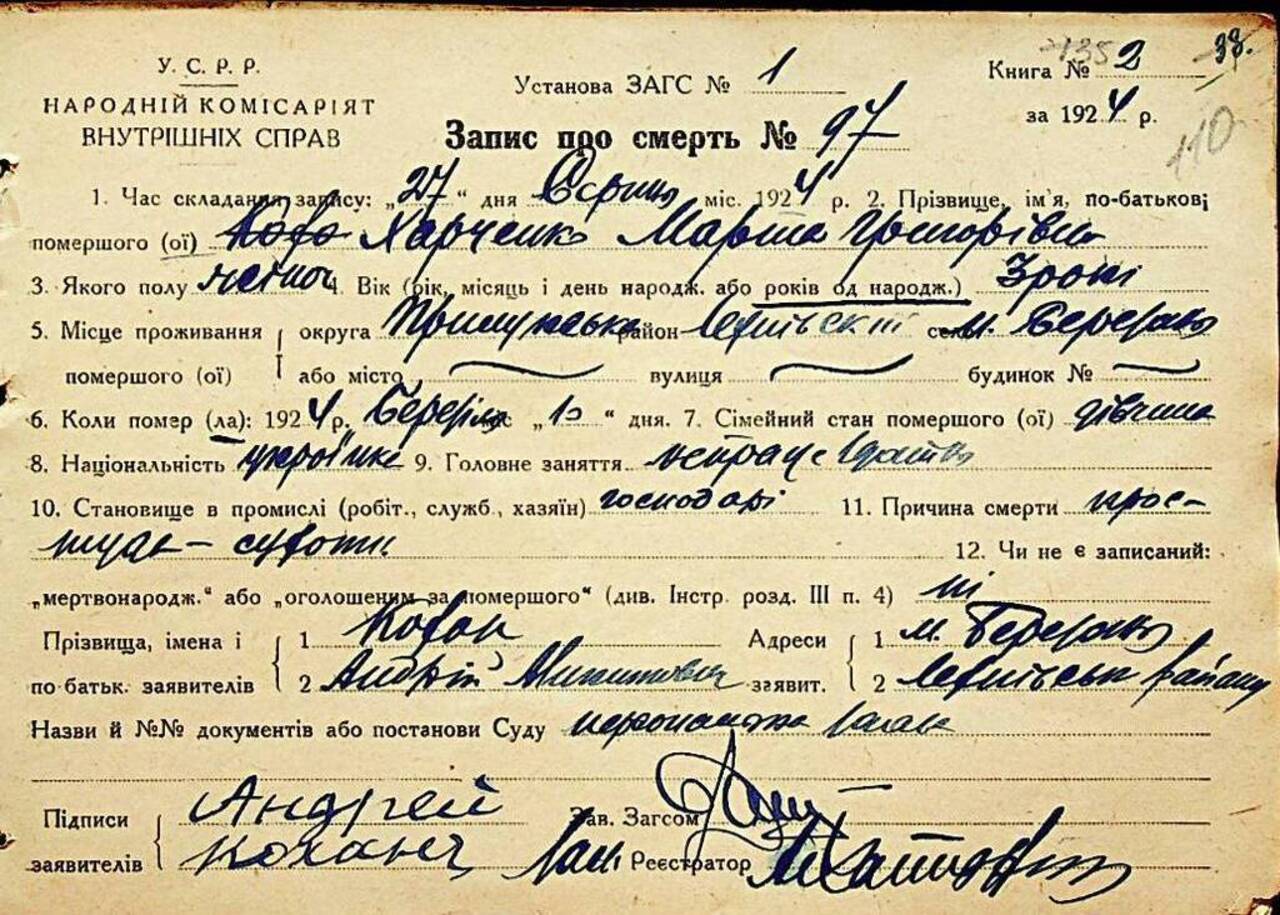 38.
1352
У. С. Р. Р.
НАРОДНІЙ КОМІСАРІЯТ
ВНУТРІШНІХ СПРАВ
Установа ЗАГС № 1
Книга № 2
за 1924 р.
110
Запис про смерть № 97
1. Час складання запису: „27“ дня Серпня міс. 1924 р. 2. Прізвище, ім'я, по-батькові
помершого (ої) Харченко Марта Григорівна
3. Якого полу жіноч 4. Вік (рік, місяць і день народж. або років од народж.) 3 роки
5. Місце проживання округа Прилуцька район село м.
помершого (ої) або місто вулиця будинок №
6. Коли помер (ла): 1924 р. „10“ дня. 7. Сімейний стан помершого (ої) дівчина
8. Національність українка 9. Головне заняття
10. Становище в промислі (робіт., служб., хазяїн) господарі 11. Причина смерти прос-
туда – сухоти 12. Чи не є записаний:
„мертвонародж.“ або „оголошеним за помершого“ (див. Інстр. розд. III п. 4) ні
Прізвища, імена і 1 Кохан Адреси 1 м.
по-батьк. заявителів 2 Андрій Микитович заявит. 2 району
Назви й №№ документів або постанови Суду
Підписи Андрей Зав. Загсом
заявителів Кохан Реєстратор